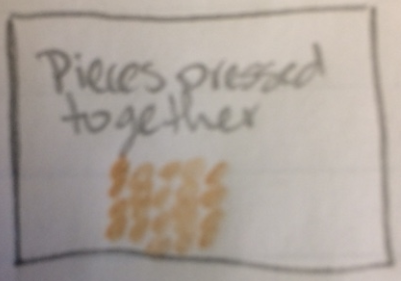 Pieces pressed
together